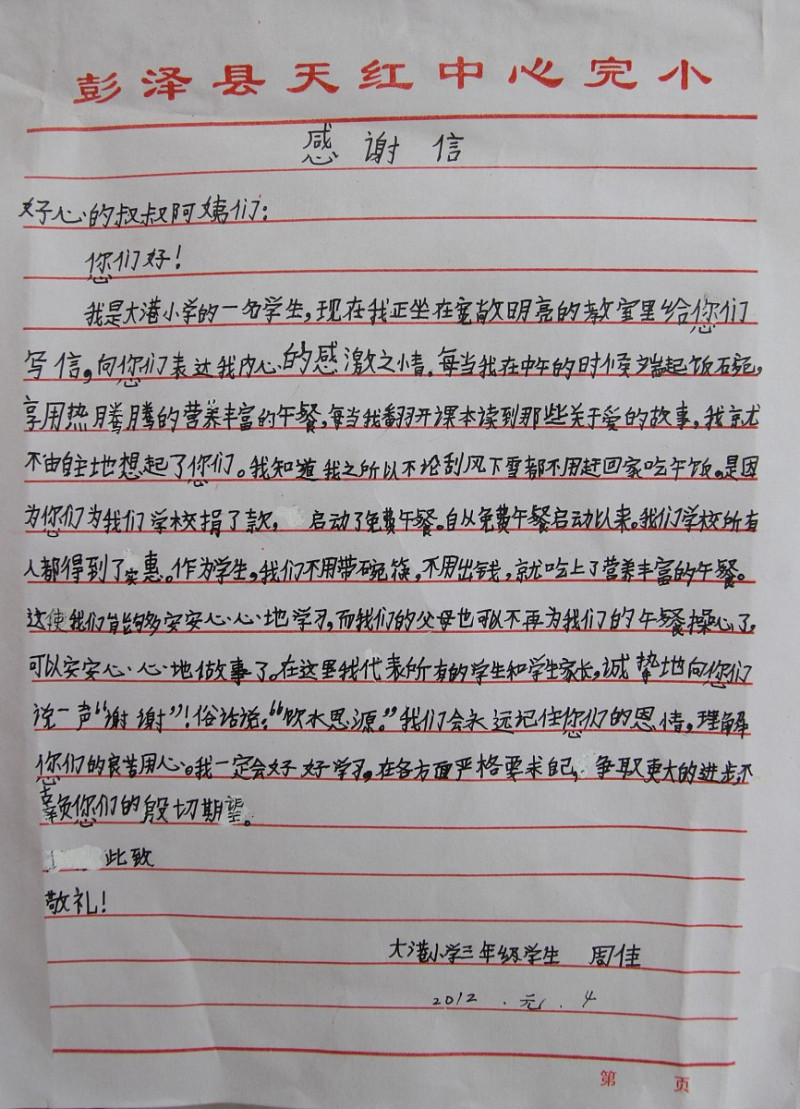 彭泽县天红中心完小
感谢信
好心的叔叔阿姨们:
您们好!
我是大港小学的一名学生,现在我正坐在宽敞明亮的教室里给您们
写信,向您们表达我内心的感激之情。每当我在中午的时候端起饭碗,
享用热腾腾的营养丰富的午餐,每当我翻开课本读到那些关于爱的故事,我就
不由自主地想起了您们。我知道我之所以不论刮风下雪都不用赶回家吃午饭。是因
为您们为我们学校捐了款, 启动了免费午餐。自从免费午餐启动以来。我们学校所有
人都得到了实惠。作为学生。我们不用带碗筷,不用出钱,就吃上了营养丰富的午餐。
这使我们能够安安心心地学习,而我们的父母也可以不再为我们的午餐操心了,
可以安安心心地做事了。在这里我代表所有的学生和学生家长,诚挚地向您们
说一声“谢谢”!俗话说:“饮水思源。”我们会永远记住您们的恩情,理解
您们的良苦用心。我一定会好好学习,在各方面严格要求自己, 争取更大的进步不
辜负您们的殷切期望。
此致
敬礼!
大港小学三年级学生 周佳
2012.元.4
第 页